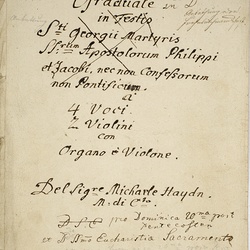 Graduale in D
in Festo
Sti Georgii Martyris
S̃srum Apostolorum Philippi
et Jacobi, nec non Confessorum
non Pontificum
a
4 Voci
2 Violini
con
Organo è Violone.
Del Sigre Michaele Haydn.
M. di C.
pro Dominica post
Pentecosten
Eucharistiæ Sacramento